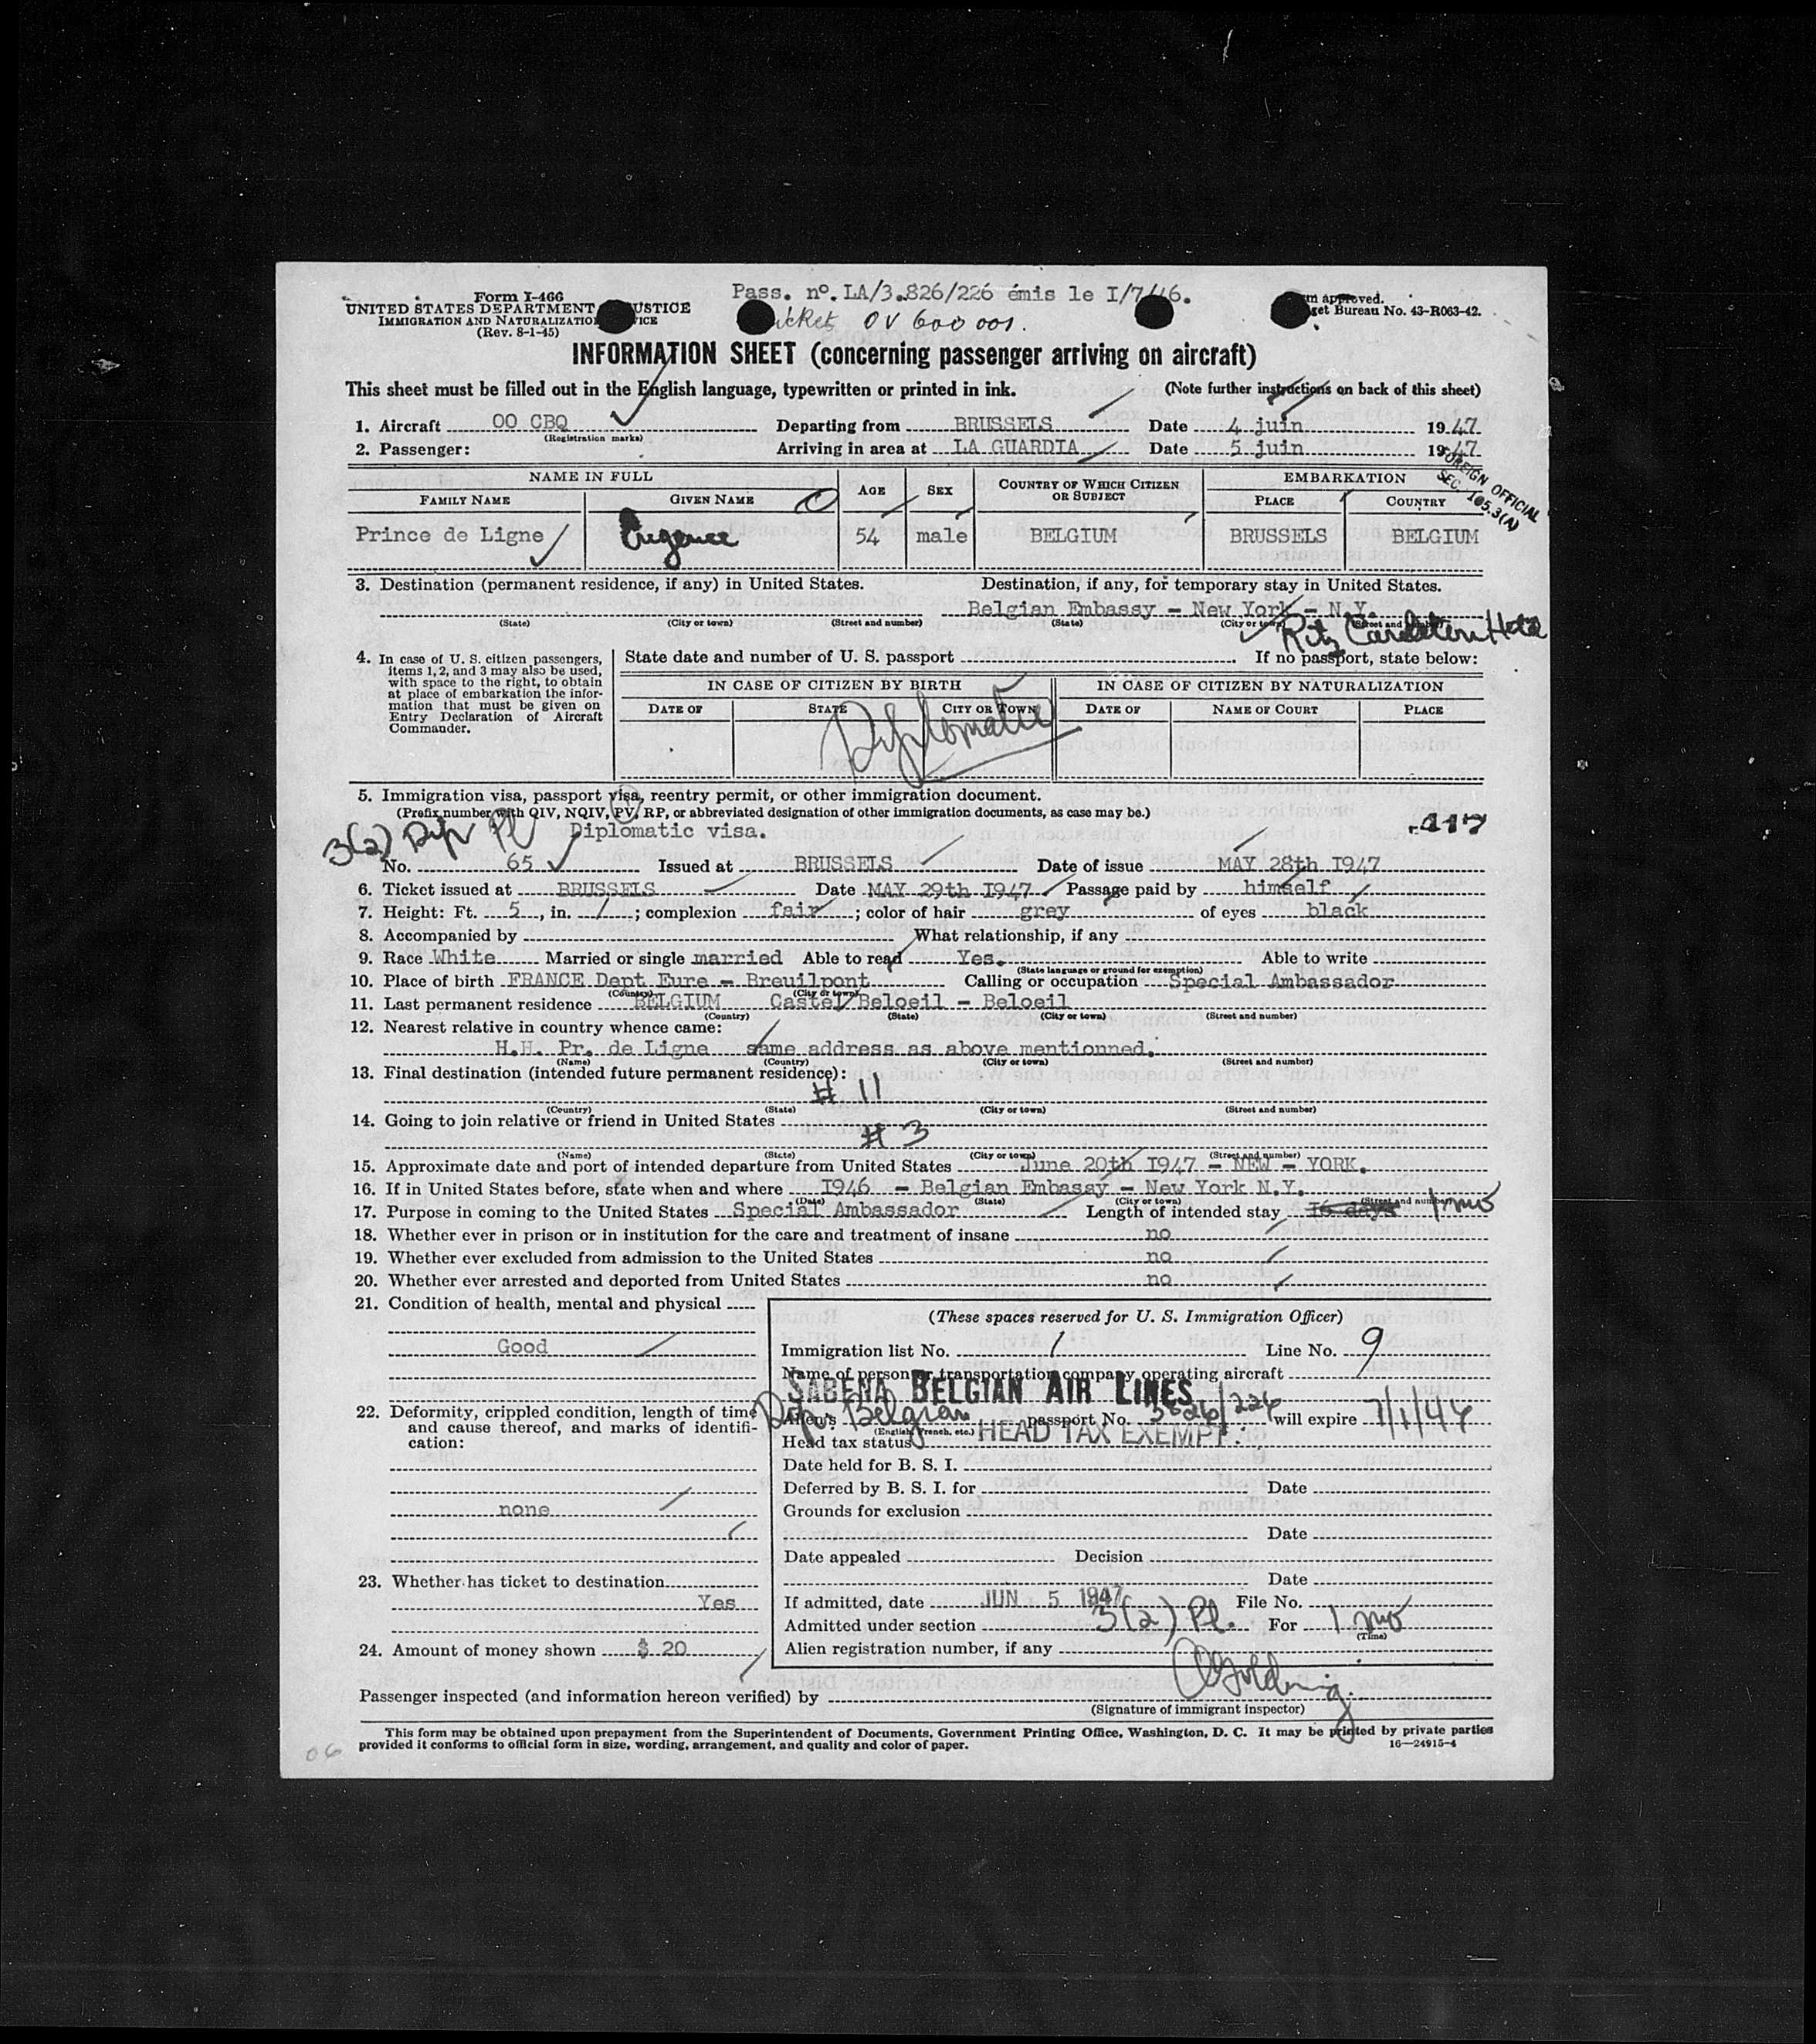 Form I-466
UNITED STATES DEPARTMENT USTICE
IMMIGRATION AND NATURALIZATIO ICE
(Rev. 8-1-45)
Pass. nº. LA/3.826/226 émis le I/7/46.
icket OV 600 001.
m approved.
get Bureau No. 43-R063-42.
INFORMATION SHEET (concerning passenger arriving on aircraft)
This sheet must be filled out in the English language, typewritten or printed in ink. (Note further instructions on back of this sheet)
1. Aircraft OO CBQ Departing from BRUSSELS Date 4 juin 1947
(Registration marks)
2. Passenger: Arriving in area at LA GUARDIA Date 5 juin 1947
FOREIGN OFFICIAL
SEC. 105.3(A)
NAME IN FULL AGE SEX COUNTRY OF WHICH CITIZEN OR SUBJECT EMBARKATION
FAMILY NAME GIVEN NAME PLACE COUNTRY
Prince de Ligne Eugene 54 male BELGIUM BRUSSELS BELGIUM
3. Destination (permanent residence, if any) in United States. Destination, if any, for temporary stay in United States.
Belgian Embassy - New York - N.Y.
(State) (City or town) (Street and number) (State) (City or town) (Street and number)
Ritz Carlton Hotel
4. In case of U. S. citizen passengers, items 1, 2, and 3 may also be used, with space to the right, to obtain at place of embarkation the information that must be given on Entry Declaration of Aircraft Commander.
State date and number of U. S. passport If no passport, state below:
IN CASE OF CITIZEN BY BIRTH IN CASE OF CITIZEN BY NATURALIZATION
DATE OF STATE CITY OR TOWN DATE OF NAME OF COURT PLACE
Diplomatic
5. Immigration visa, passport visa, reentry permit, or other immigration document.
(Prefix number with QIV, NQIV, PV, RP, or abbreviated designation of other immigration documents, as case may be.)
3(2) Dip Pl Diplomatic visa.
No. 65 Issued at BRUSSELS Date of issue MAY 28th I947
6. Ticket issued at BRUSSELS Date MAY 29th I947 Passage paid by himself
7. Height: Ft. 5, in. 1; complexion fair; color of hair grey of eyes black
8. Accompanied by What relationship, if any
9. Race White Married or single married Able to read Yes. Able to write
(State language or ground for exemption)
10. Place of birth FRANCE Dept Eure - Breuilpont Calling or occupation Special Ambassador
(Country) (City or town)
11. Last permanent residence BELGIUM Castel Beloeil - Beloeil
(Country) (State) (City or town) (Street and number)
12. Nearest relative in country whence came:
H.H. Pr. de Ligne same address as above mentionned.
(Name) (Country) (City or town) (Street and number)
13. Final destination (intended future permanent residence):
# 11
(Country) (State) (City or town) (Street and number)
14. Going to join relative or friend in United States
# 3
(Name) (State) (City or town) (Street and number)
15. Approximate date and port of intended departure from United States June 20th I947 - NEW - YORK.
16. If in United States before, state when and where I946 - Belgian Embassy - New York N.Y.
(Date) (State) (City or town) (Street and number)
17. Purpose in coming to the United States Special Ambassador Length of intended stay I6 days 1 mo
18. Whether ever in prison or in institution for the care and treatment of insane no
19. Whether ever excluded from admission to the United States no
20. Whether ever arrested and deported from United States no
21. Condition of health, mental and physical
Good
22. Deformity, crippled condition, length of time and cause thereof, and marks of identification:
none
23. Whether has ticket to destination
Yes
24. Amount of money shown $ 20
(These spaces reserved for U. S. Immigration Officer)
Immigration list No. 1 Line No. 9
Name of person or transportation company operating aircraft
SABENA BELGIAN AIR LINES
Dip. Alien's Belgian passport No. 3826/226 will expire 7/1/48
(English, French, etc.)
Head tax status HEAD TAX EXEMPT.
Date held for B. S. I.
Deferred by B. S. I. for Date
Grounds for exclusion
Date
Date appealed Decision
Date
If admitted, date JUN 5 1947 File No.
Admitted under section 3(2) Pl. For 1 mo
(Time)
Alien registration number, if any
Passenger inspected (and information hereon verified) by
(Signature of immigrant inspector)
This form may be obtained upon prepayment from the Superintendent of Documents, Government Printing Office, Washington, D. C. It may be printed by private parties
provided it conforms to official form in size, wording, arrangement, and quality and color of paper. 16—24915-4
06